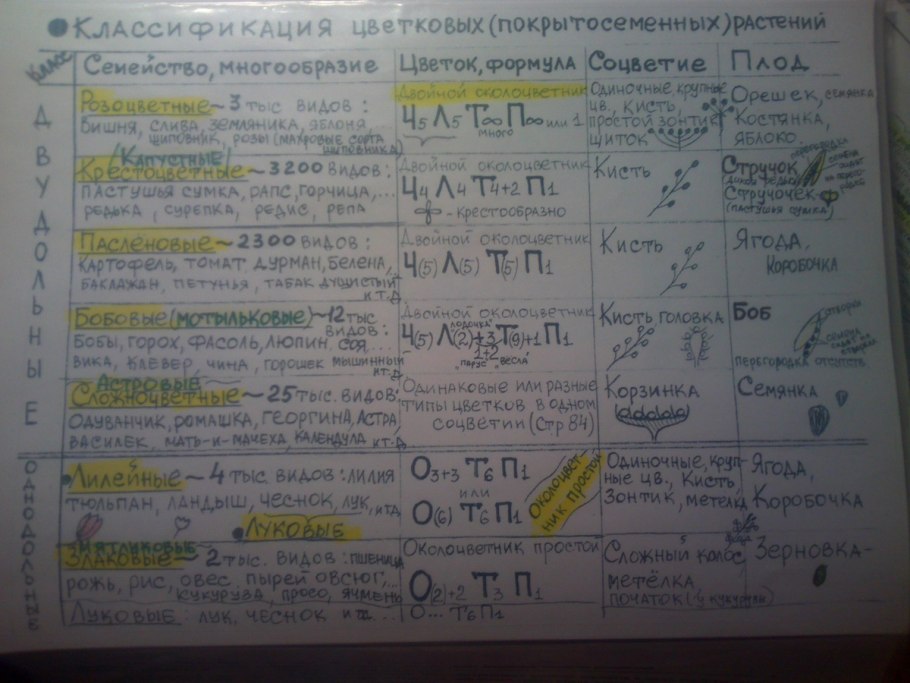 •Классификация цветковых (покрытосеменных) растений
Класс
Семейство, многообразие
Цветок, формула
Соцветие
Плод
ДВУДОЛЬНЫЕ
Розоцветные ~ 3 тыс видов:
вишня, слива, земляника, яблоня
шиповник, розы (махровые сорта
шиповника)
Двойной околоцветник
Ч5 Л5 Т∞ П∞ или 1
много
Одиночные крупные
цв., кисть,
простой зонтик
щиток
Орешек, семянка
Костянка,
яблоко
(Капустные)
Крестоцветные ~ 3200 видов:
пастушья сумка, рапс, горчица,...
редька, сурепка, редис, репа
Двойной околоцветник
Ч4 Л4 Т4+2 П1
- крестообразно
Кисть
перегородка
Стручок
Стручочек
(пастушья сумка)
Паслёновые ~ 2300 видов:
картофель, томат дурман, белена,
баклажан, петунья, табак душистый
и т.д
Двойной околоцветник
Ч(5) Л(5) Т(5) П1
Кисть
Ягода,
Коробочка
Бобовые (мотыльковые) ~ 12 тыс
видов:
бобы, горох, фасоль, люпин. соя...
вика, клевер, чина, горошек мышинный
и т.д
Двойной околоцветник
лодочка
Ч(5) Л(2)+3 Т(9)+1 П1
1+2
"парус" "весла"
Кисть головка
Боб
створки
перегородка отсутств
Астровые
Сложноцветные ~ 25 тыс. видов:
Одуванчик, ромашка, георгина, астра
василек, мать-и-мачеха, календула и т.д
Одинаковые или разные
типы цветков в одном
соцветии (Стр 84)
Корзинка
Семянка
ОДНОДОЛЬНЫЕ
•Лилейные ~ 4 тыс видов: лилия
тюльпан, ландыш, чеснок, лук, и т.д
•Луковые
О3+3 Т6 П1
или
О(6) Т6 П1
Околоцвет-
ник простой
Одиночные, круп-
ные цв., Кисть
Зонтик, метелка
Ягода,
Коробочка
Мятликовые
Злаковые ~ 2 тыс. видов: пшеница
рожь, рис, овес, пырей овсюг,...
кукуруза, просо, ячмень
Околоцветник простой
О(2)+2 Т3 П1
Сложный колос
метёлка,
початок (у кукурузы)
Зерновка-
Луковые: лук, чеснок и
О... Т6 П1